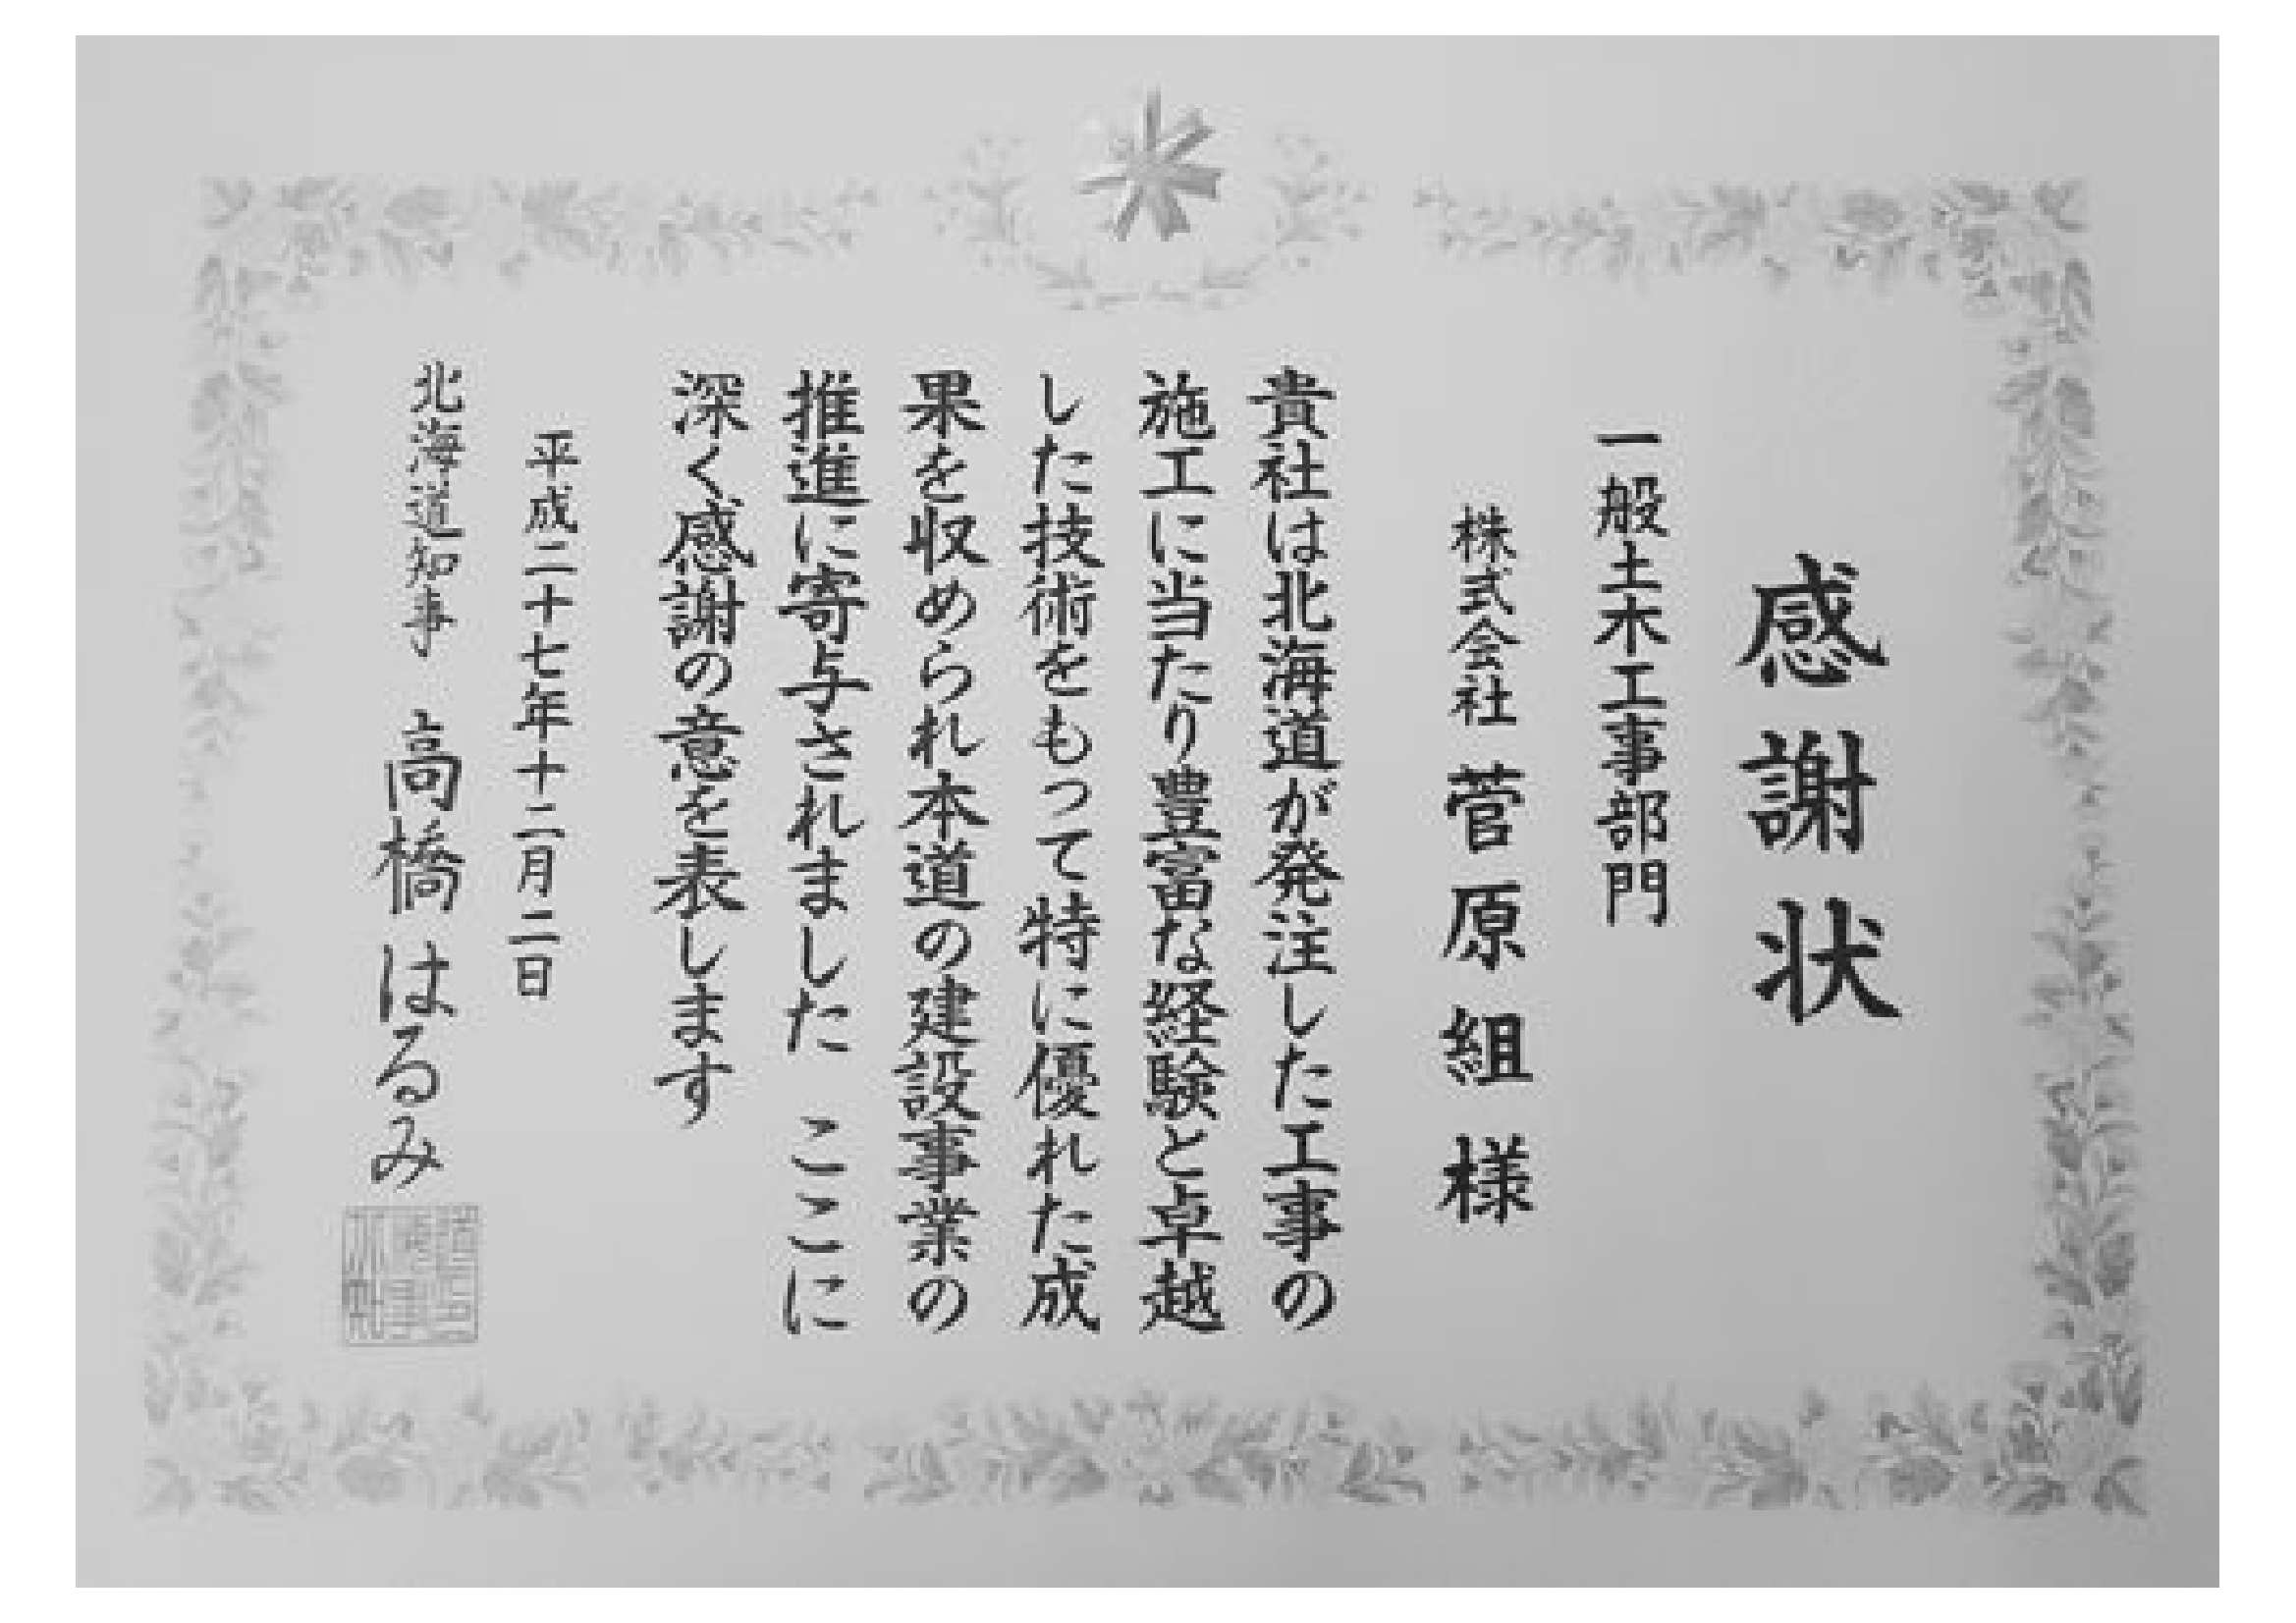 感謝状
一般土木工事部門
株式会社 菅原組 様
貴社は北海道が発注した工事の
施工に当たり豊富な経験と卓越
した技術をもって特に優れた成
果を収められ本道の建設事業の
推進に寄与されました ここに
深く感謝の意を表します
平成二十七年十二月二日
北海道知事 高橋はるみ